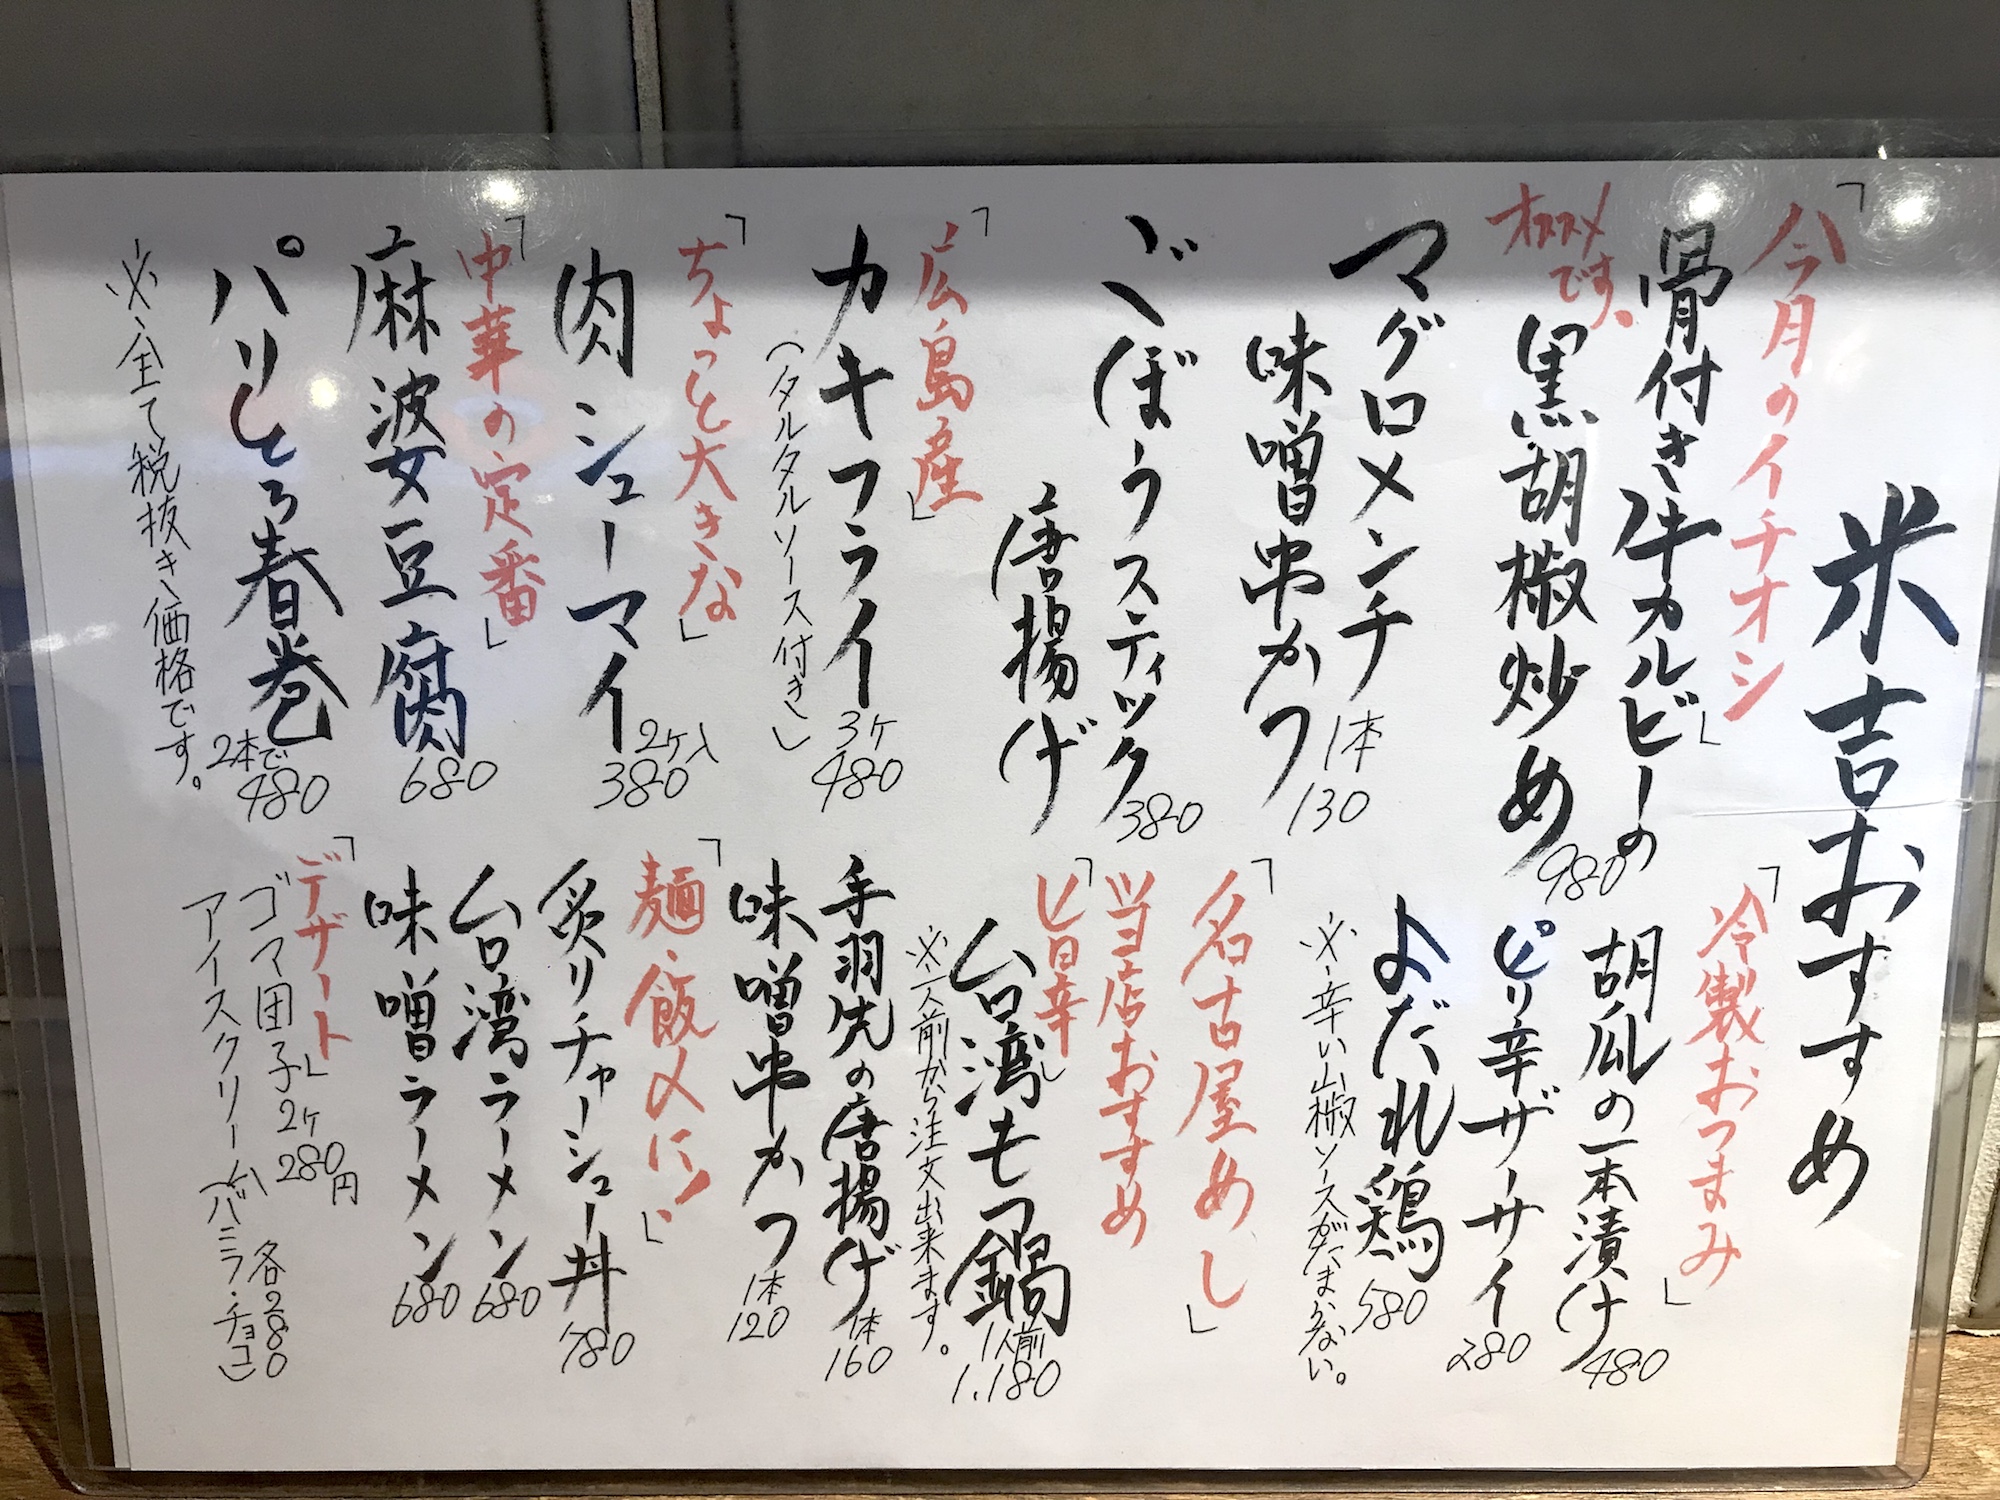 米吉おすすめ
「今月のイチオシ」
骨付き牛カルビーの
黒胡椒炒め 980
オススメです。
マグロメンチ
味噌串カツ 1本 130
ごぼうスティック
唐揚げ 380
「広島産」
カキフライ 3ヶ 480
(タルタルソース付き)
「ちょっと大きな」
肉シューマイ 2ヶ入 380
「中華の定番」
麻婆豆腐 680
パリとろ春巻 2本で 480
※全て税抜き価格です。
「冷製おつまみ」
胡瓜の一本漬け 480
ピリ辛ザーサイ 280
よだれ鶏 580
※辛い山椒ソースがたまらない。
「名古屋めし」
当店おすすめ
「旨辛」
台湾もつ鍋 1人前 1.180
※一人前から注文出来ます。
手羽先の唐揚げ 1本 160
味噌串カツ 1本 120
「麺・飯〆に!」
炙りチャーシュー丼 780
台湾ラーメン 680
味噌ラーメン 680
「デザート」
ゴマ団子 2ヶ 280円
アイスクリーム(バニラ・チョコ) 各280